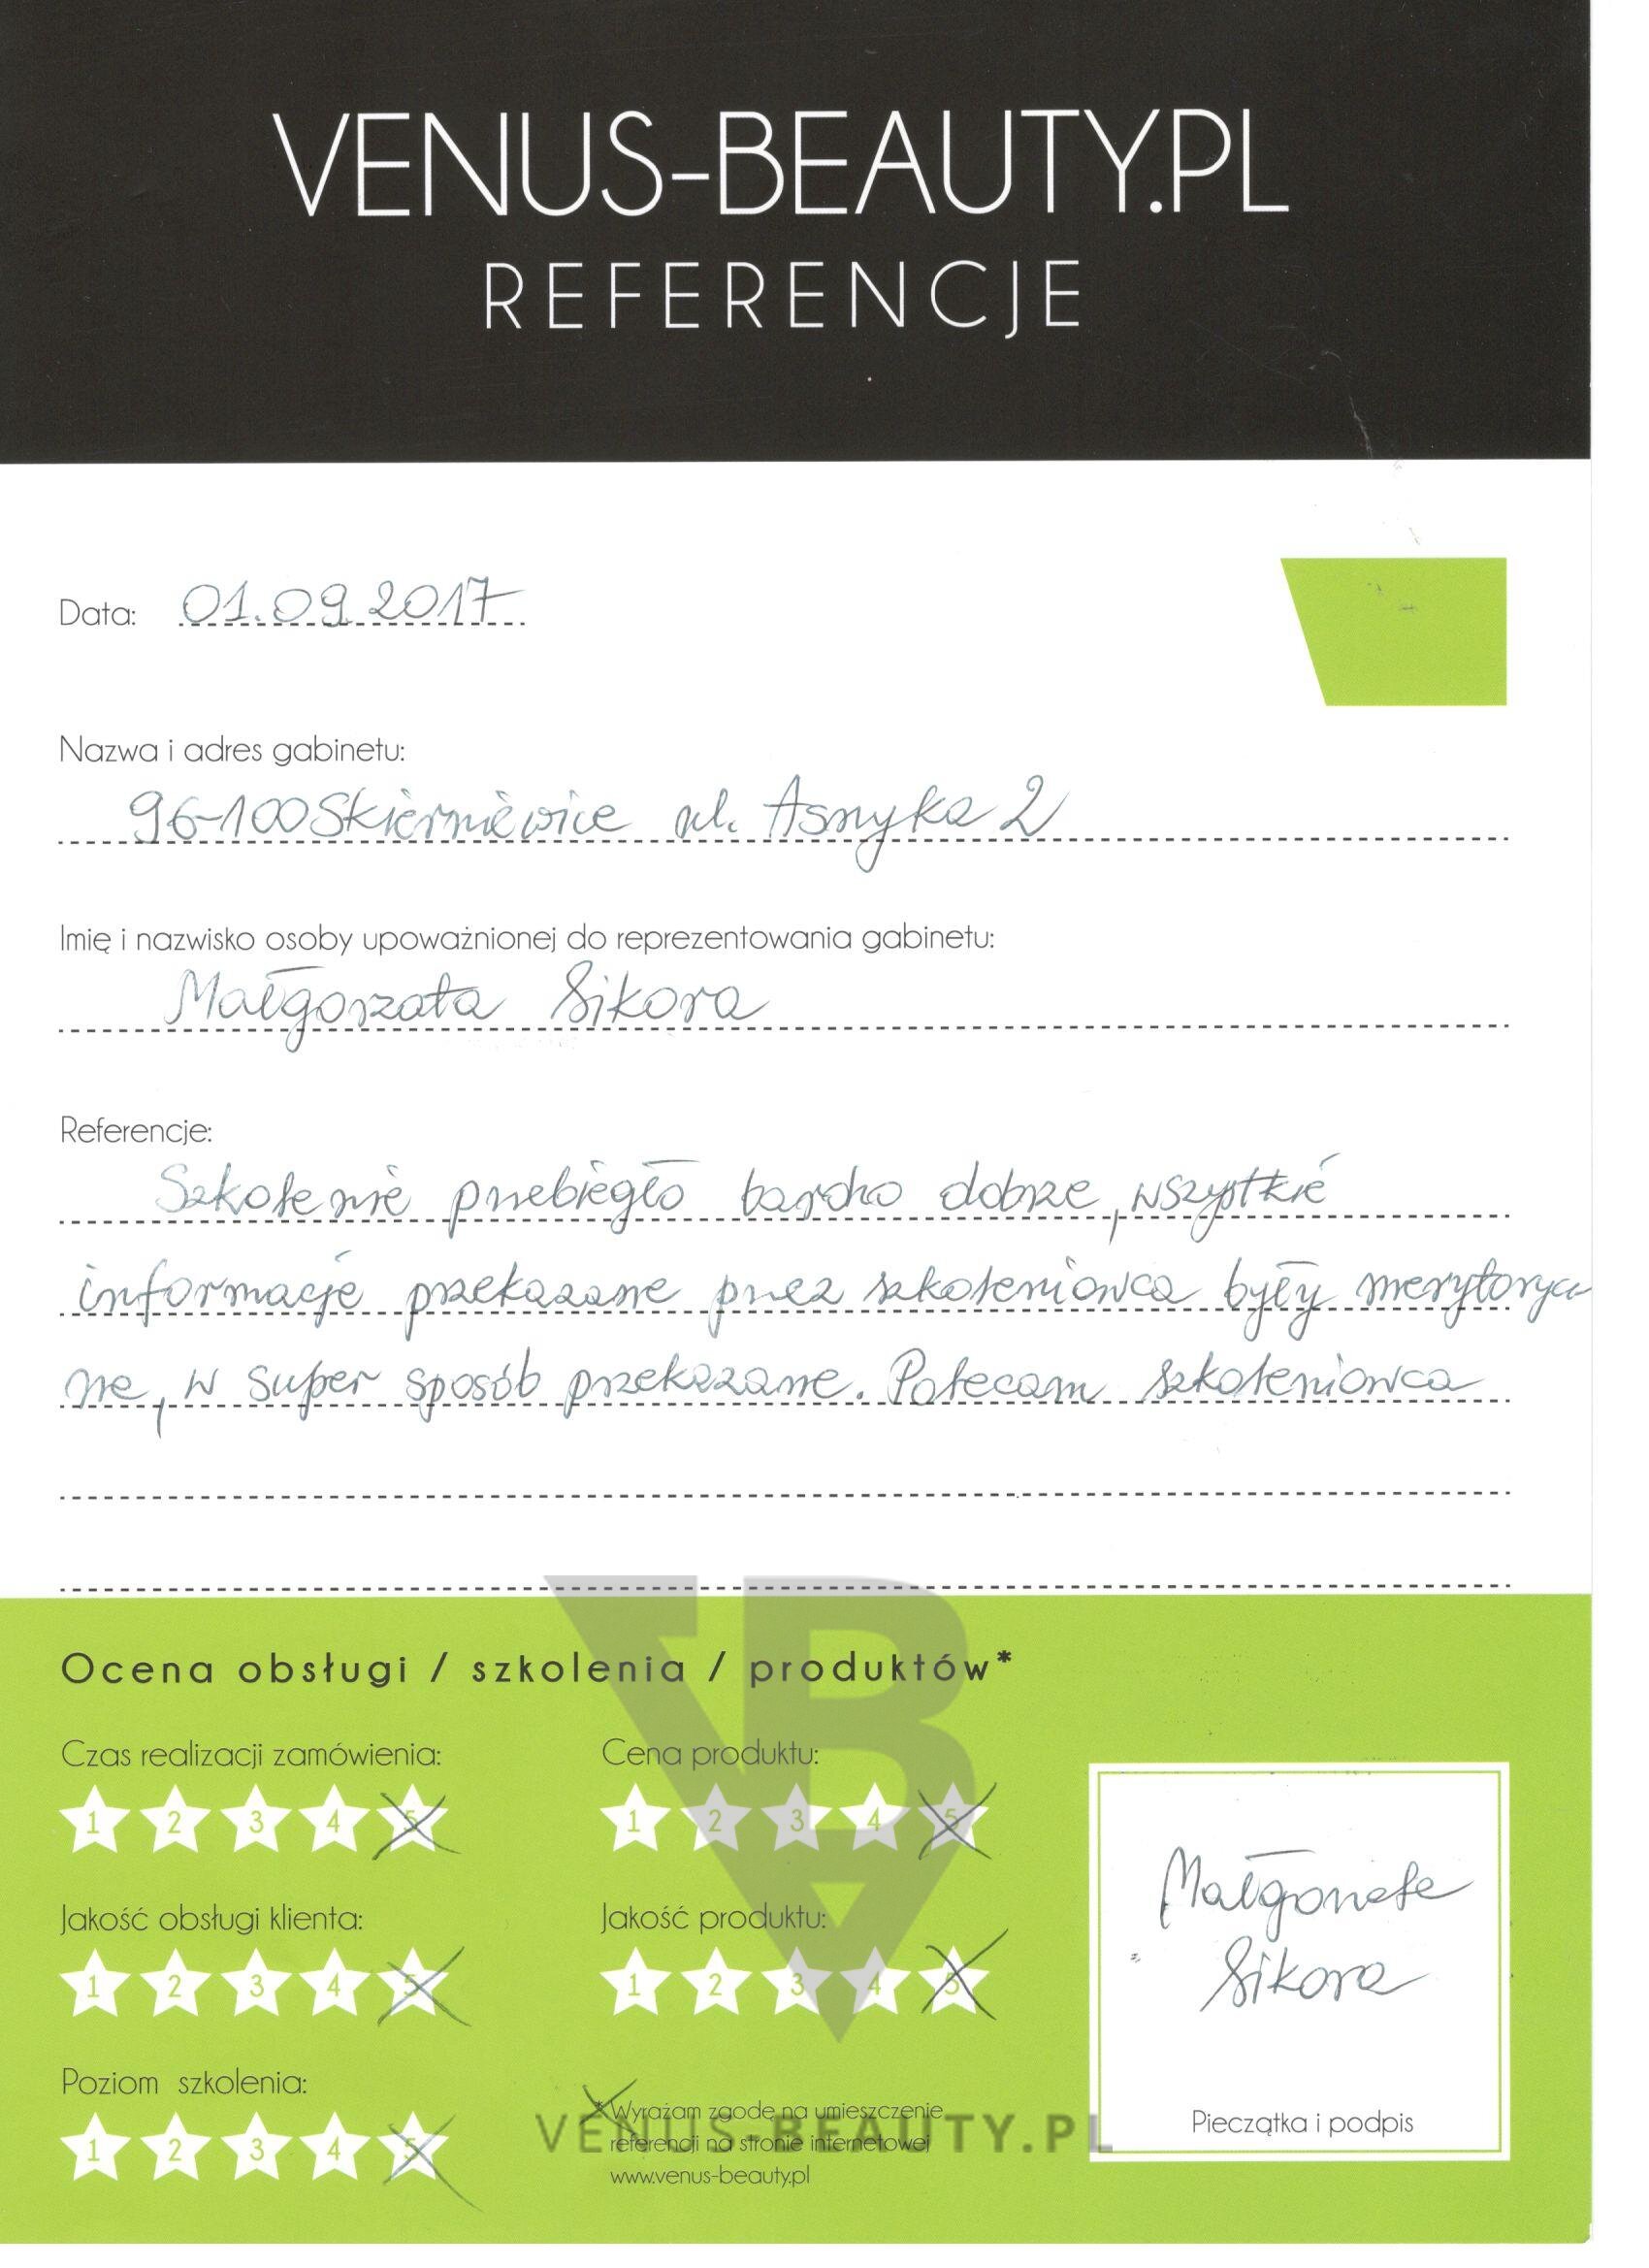 VENUS-BEAUTY.PL
REFERENCJE
Data: 01.09.2017
Nazwa i adres gabinetu:
96-100 Skierniewice ul. Asnyka 2
Imię i nazwisko osoby upoważnionej do reprezentowania gabinetu:
Małgorzata Sikora
Referencje:
Szkolenie przebiegło bardzo dobrze, wszystkie
informacje przekazane przez szkoleniowca były merytorycz
ne, w super sposób przekazane. Polecam szkoleniowca
Ocena obsługi / szkolenia / produktów*
Czas realizacji zamówienia:
1 2 3 4 5
Cena produktu:
1 2 3 4 5
Jakość obsługi klienta:
1 2 3 4 5
Jakość produktu:
1 2 3 4 5
Małgorzata
Sikora
Pieczątka i podpis
Poziom szkolenia:
1 2 3 4 5
*Wyrażam zgodę na umieszczenie
referencji na stronie internetowej
www.venus-beauty.pl
VBA
VENUS-BEAUTY.PL